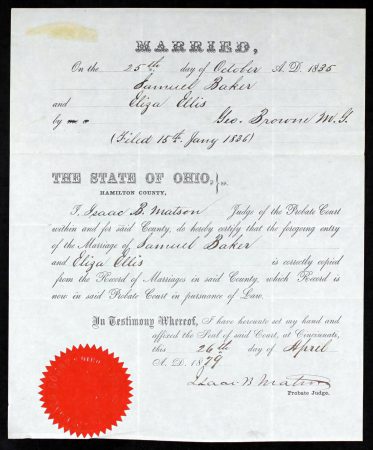 MARRIED,
On the 25th day of October A. D. 1835
Samuel Baker
and Eliza Ellis
by Geo. Browne M. G.
(Filed 15th Jany 1836)
THE STATE OF OHIO, } ss.
HAMILTON COUNTY,
I, Isaac B. Matson Judge of the Probate Court
within and for said County, do hereby certify that the foregoing entry
of the Marriage of Samuel Baker
and Eliza Ellis is correctly copied
from the Record of Marriages in said County, which Record is
now in said Probate Court in pursuance of Law.
In Testimony Whereof, I have hereunto set my hand and
affixed the Seal of said Court, at Cincinnati,
this 26th day of April
A. D. 1879
Isaac B Matson
Probate Judge.